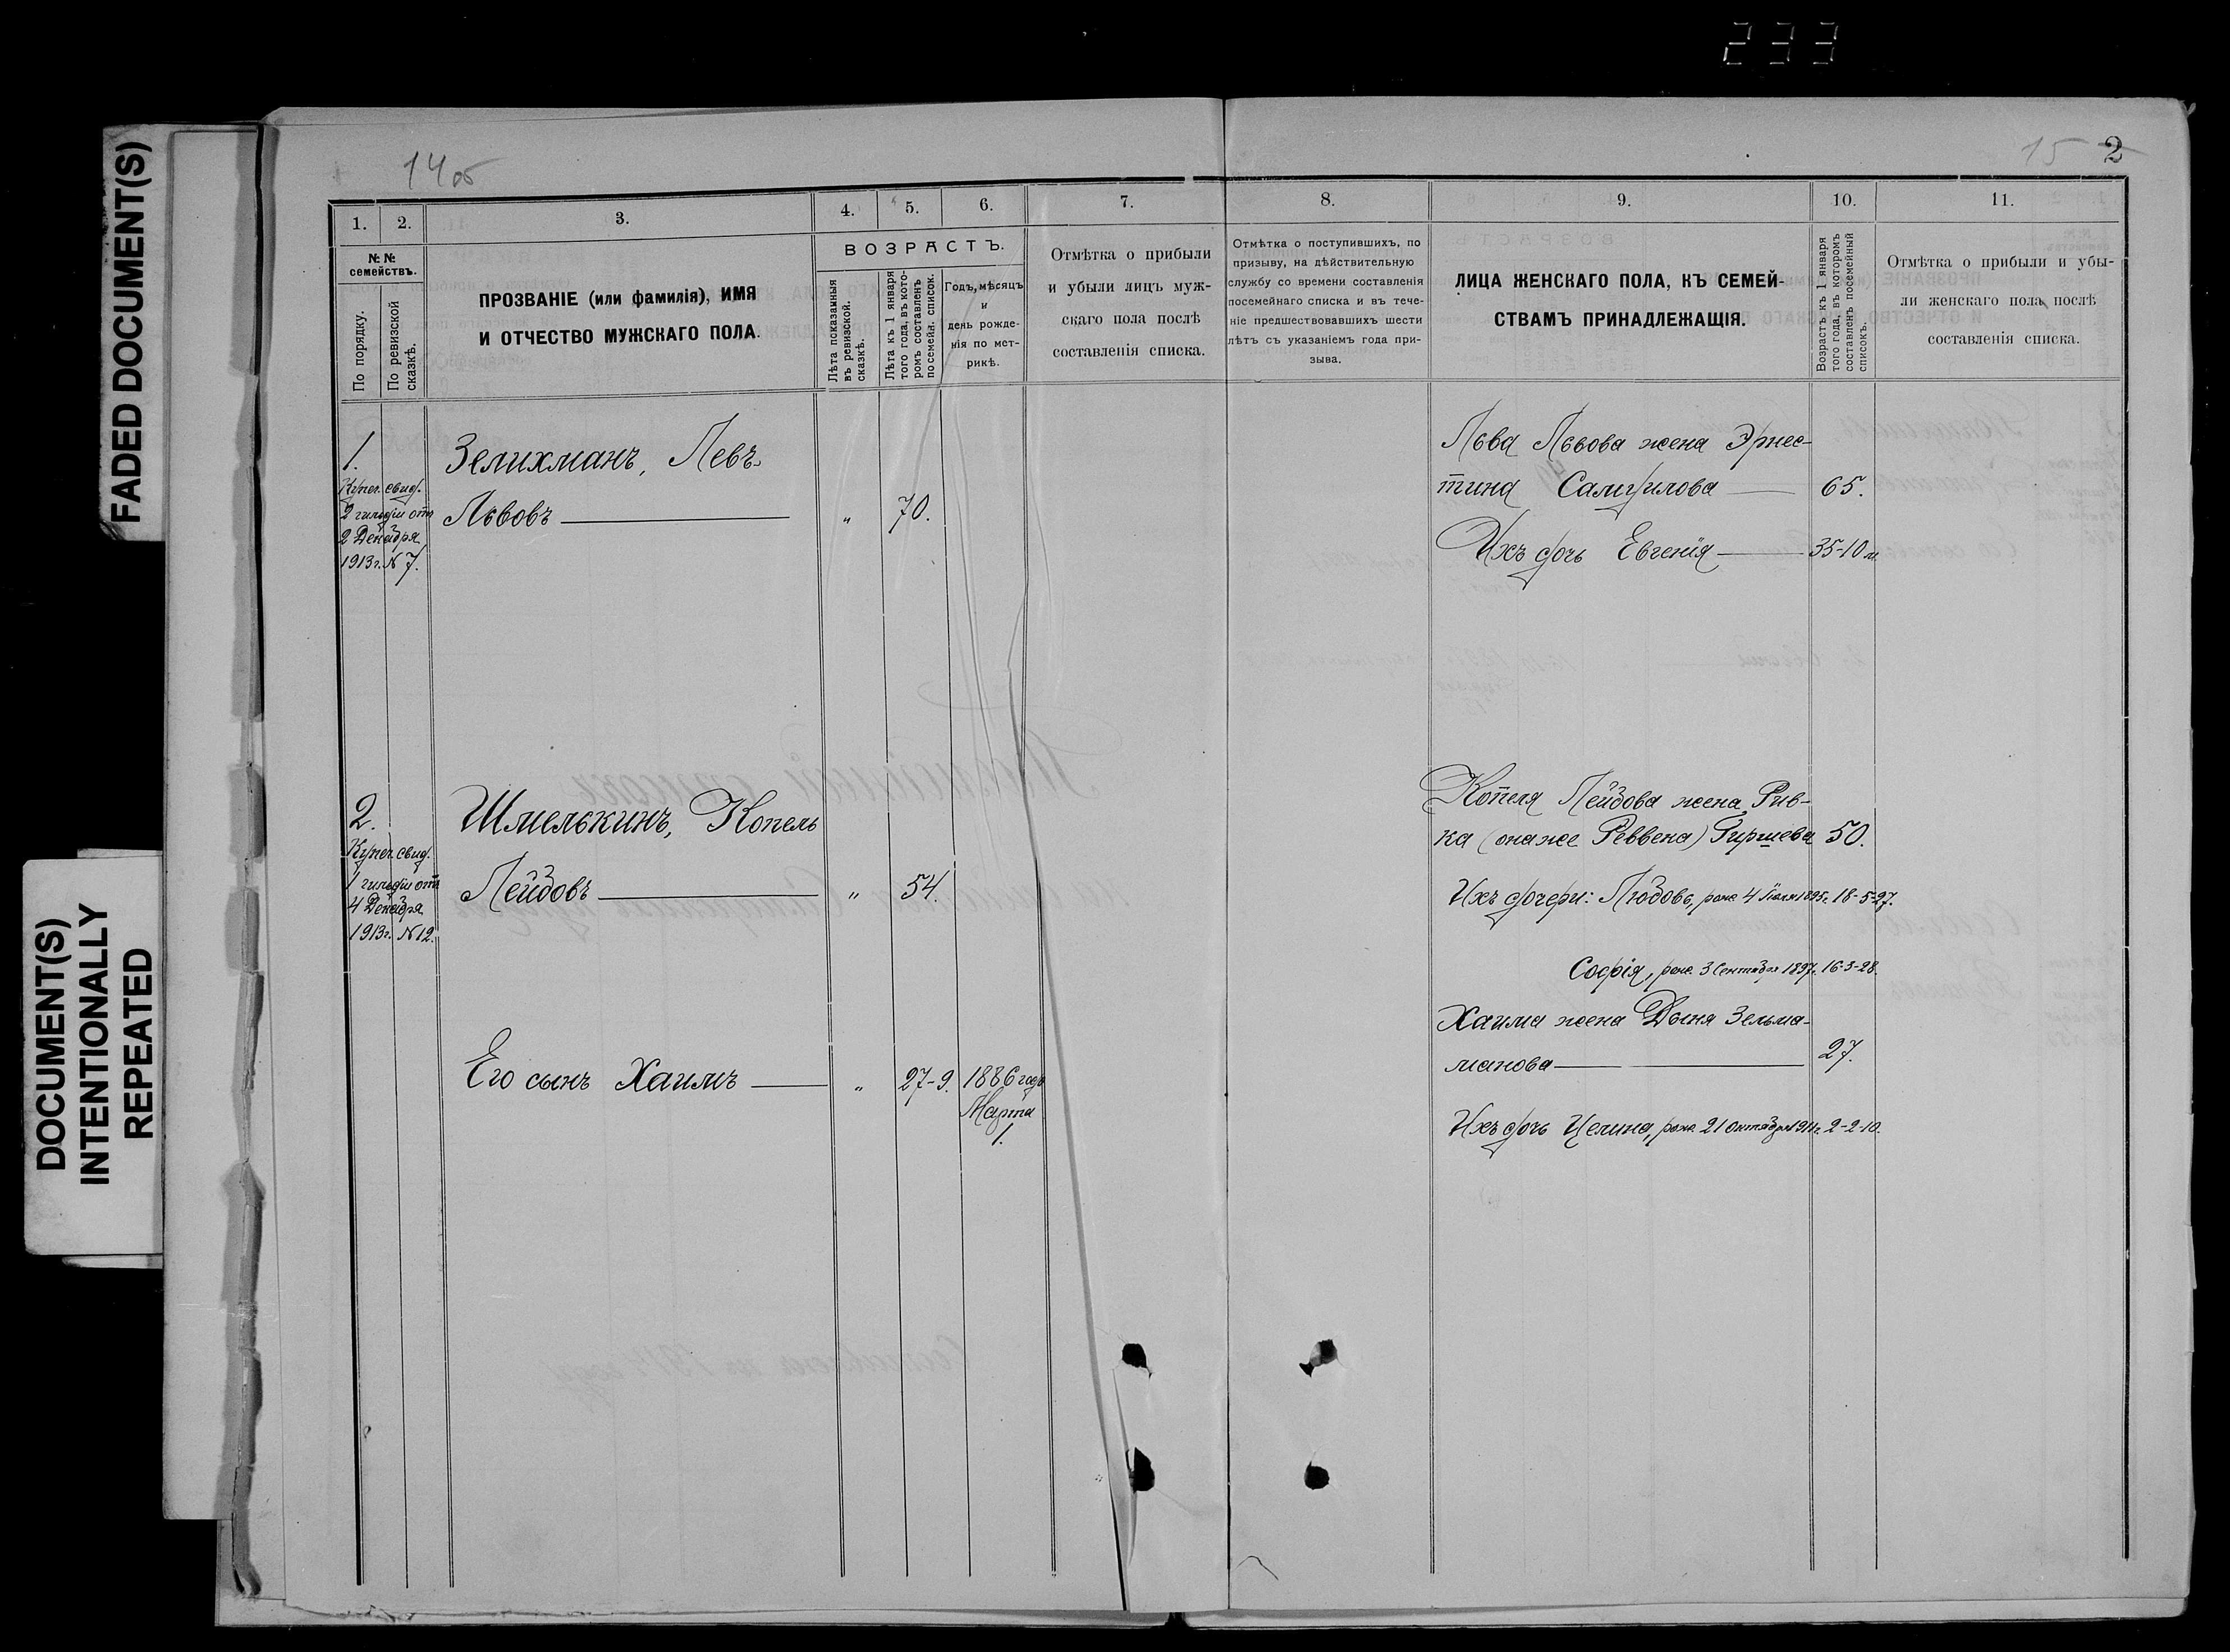 233
FADED DOCUMENT(S)
DOCUMENT(S)
INTENTIONALLY
REPEATED
14об
15 2
1.
2.
3.
4.
5.
6.
7.
8.
9.
10.
11.
№ №
семействъ.
По порядку.
По ревизской
сказкѣ.
ПРОЗВАНІЕ (или фамилія), ИМЯ
И ОТЧЕСТВО МУЖСКАГО ПОЛА.
ВОЗРАСТЪ.
Лѣта показанныя
въ ревизской.
сказкѣ.
Лѣта къ 1 января
того года, въ кото-
ромъ составленъ
посемейн. список.
Годъ, мѣсяцъ
и
день рожде-
нія по мет-
рикѣ.
Отмѣтка о прибыли
и убыли лицъ муж-
скаго пола послѣ
составленія списка.
Отмѣтка о поступившихъ, по
призыву, на дѣйствительную
службу со времени составленія
посемейнаго списка и въ тече-
ніе предшествовавшихъ шести
лѣтъ съ указаніемъ года при-
зыва.
ЛИЦА ЖЕНСКАГО ПОЛА, КЪ СЕМЕЙ-
СТВАМЪ ПРИНАДЛЕЖАЩІЯ.
Возрастъ къ 1 января
того года, въ которомъ
составленъ посемейный
списокъ.
Отмѣтка о прибыли и убы-
ли женскаго пола послѣ
составленія списка.
1.
Купеч. свид.
2 гильдіи отъ
2 Декабря
1913 г. № 7.
Зелихманъ, Левъ
Львовъ " 70.
Льва Львова жена Эрнес-
тина Самуилова 65.
Ихъ дочь Евгенія 35-10 м.
2.
Купеч. свид.
1 гильдіи отъ
4 Декабря
1913 г. № 12.
Шмелькинъ, Копель
Лейбовъ " 54.
Копеля Лейбова жена Рив-
ка (она же Реввека) Гиршева 50.
Ихъ дочери: Любовь, рож. 4 Іюля 1895 г. 18-5-27.
Софія, рож. 3 Сентября 1897 г. 16-3-28.
Его сынъ Хаимъ " 27-9. 1886 года
Марта
1.
Хаима жена Двеня Зельма-
манова 27.
Ихъ дочь Целина, рож. 21 Октября 1911 г. 2-2-10.